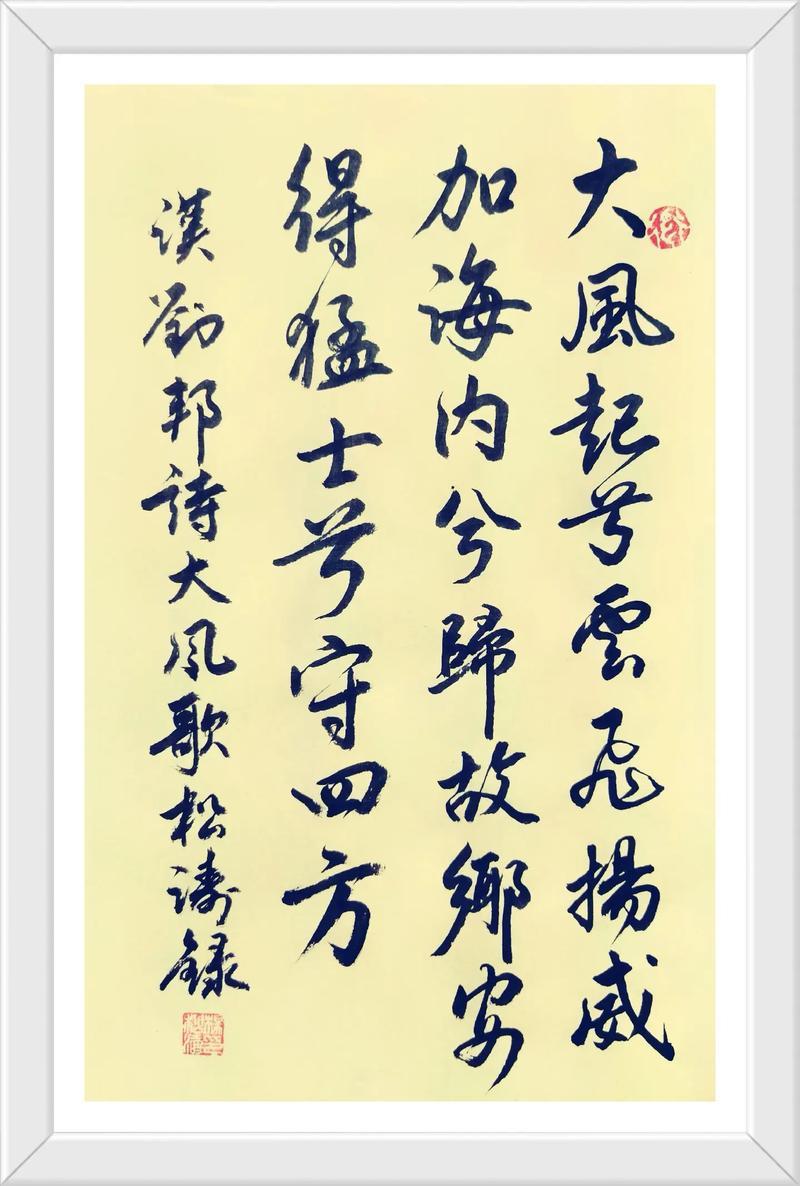 大風起兮雲飛揚威
加海内兮歸故鄉安
得猛士兮守四方
漢劉邦詩大風歌松濤錄